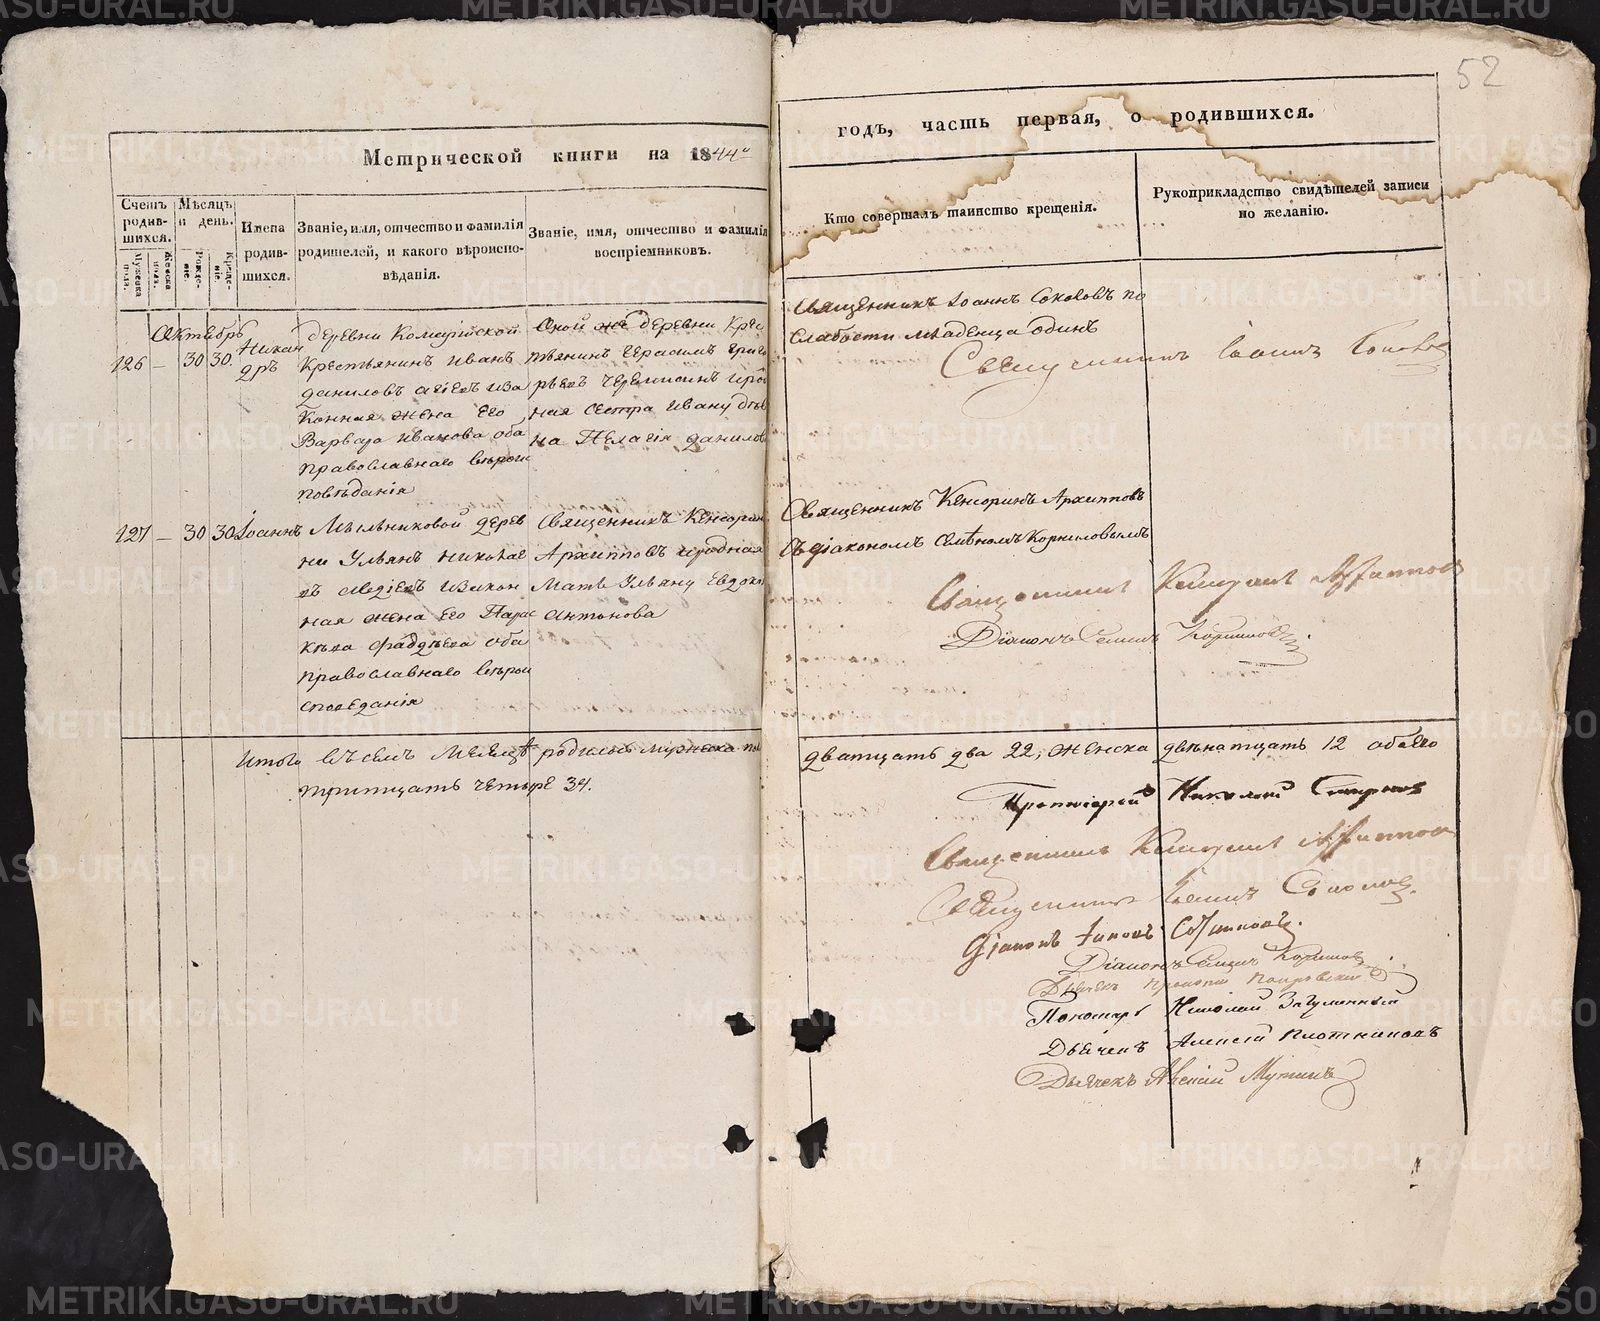 52
Метрической книги на 1844й
годъ, часть первая, о родившихся.
Счетъ родив-шихся.
Мужеска пола.
Женска пола.
Мѣсяцъ и день.
Рожде-ніе.
Креще-ніе.
Имена родив-шихся.
Званіе, имя, отчество и фамилія
родителей, и какого вѣроиспо-
вѣданія.
Званіе, имя, отчество и фамилія
воспріемниковъ.
Кто совершалъ таинство крещенія.
Рукоприкладство свидѣтелей записи
по желанію.
Октябрь
126 — 30 30.
Никан
дръ
деревни
Крестьянинъ Иванъ
Даниловъ
конная жена его
Варвара Иванова оба
православнаго вѣрои
повѣданія
Оной же деревни Крес
тьянинъ Герасимъ Григо
рьевъ
ная сестра Ивану дѣв
ка Пелагія Данилов
Священникъ Іоаннъ Соколовъ по
слабости младенца одинъ
Священникъ Іоаннъ Соколов
127 — 30 30
Іоаннъ
Мыльниковой дерев
ни Ульянъ Николае
въ изакон
ная жена его Парас
кева Фаддѣева оба
православнаго вѣрои
споведанія
Священникъ Кенсорин
Архипповъ иродная
мать Ульяну Евдоки
Антонова
Священникъ Кенсоринъ Архипповъ
съ діакономъ Семеномъ Корниловымъ
Священникъ Кенсоринъ Архиппов
Діаконъ Семенъ Корнилов
Итого въ семъ месяцѣ родилось мужеска по
дватцать два 22, женска двѣнатцать 12 обаего
тритцать четыре 34.
Протоіерей Николай Смирнов
Священникъ Кенсоринъ Архиппов
Священникъ Іоаннъ Соколов.
Діаконъ
Діаконъ Семенъ Корнилов
Дьячекъ Покровскій
Пономарь Николай
Дьячекъ Алексѣй Плотниковъ
Дьячекъ
METRIKI.GASO-URAL.RU